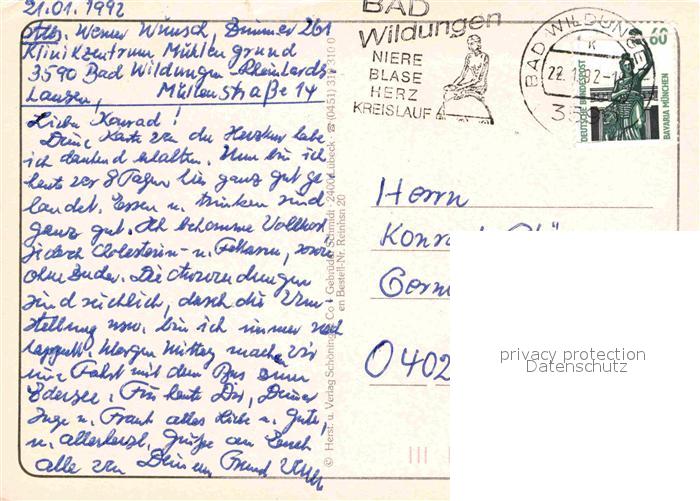 21.01.1992
Abs. Werner Wünsch, Zimmer 261
Klinikzentrum Mühlengrund
3590 Bad Wildungen-Reinhards-
hausen, Mühlenstraße 14
Lieber Konrad!
Deine Karte von der Herzkur habe
ich dankend erhalten. Nun bin ich
heute vor 8 Tagen hier ganz gut ge-
landet. Essen u. trinken sind
ganz gut. Ich bekomme Vollkost
jedoch Cholesterin- u. Fettarm, sowie
ohne Zucker. Die Anwendungen
sind reichlich, durch die Um-
stellung usw. bin ich immer noch
kaputt. Morgen Mittag machen wir
eine Fahrt mit dem Bus zum
Edersee. Für heute Dir, Deiner
Inge u. Frank alles Liebe u. Gute,
u. allerherzl. Grüße an Euch
alle von Deinem Freund
BAD
Wildungen
NIERE
BLASE
HERZ
KREISLAUF
BAD WILDUNGEN
22.1.92
60
DEUTSCHE BUNDESPOST
BAVARIA MÜNCHEN
Herrn
Konrad
0402
© Herst. u. Verlag Schöning & Co · Gebrüder Schmidt · 2400 Lübeck · ☎ (0451) 310 310 0
en Bestell-Nr. Reinhsn 20
privacy protection
Datenschutz